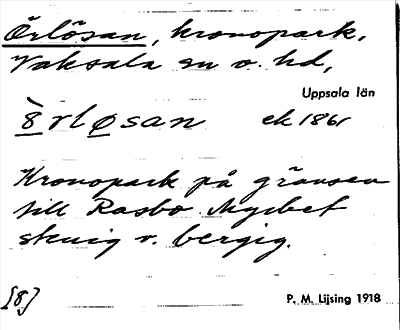 Örlösan, kronopark,
Vaksala sn o. hd,
Uppsala län
ö̀rløsan ek 1861
Kronopark på gränsen
till Rasbo. Mycket
stenig o. bergig.
[8]
P. M. Lijsing 1918